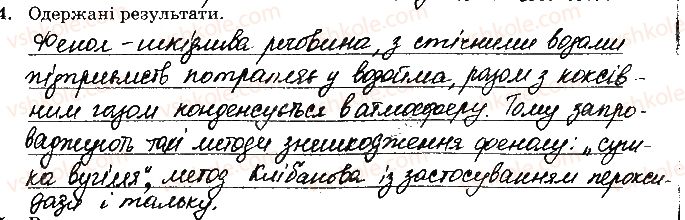 4. Одержані результати.
Фенол – шкідлива речовина, з стічними водами
підприємств потрапляє у водойма, разом з коксів-
ним газом конденсується в атмосферу. Тому запро-
ваджують такі методи знешкодження фенолу: „суш-
ка вугілля", метод Клібанова із застосуванням перокси-
дази і тальку.